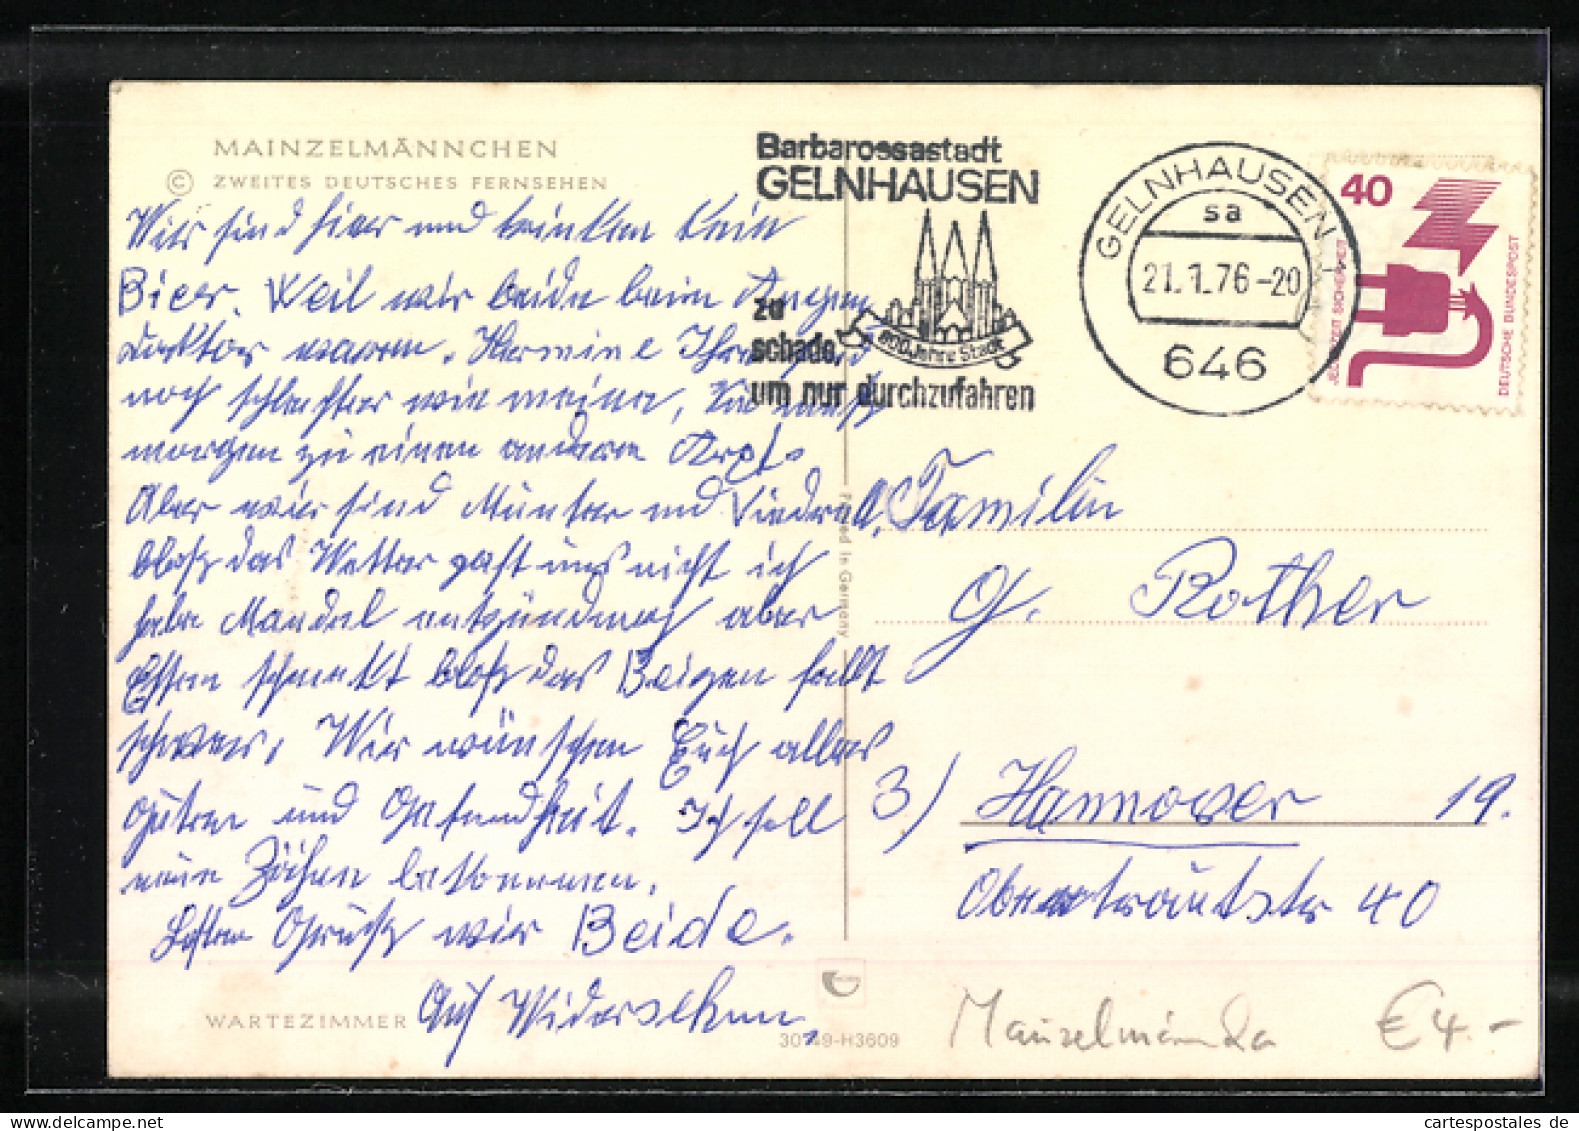 MAINZELMÄNNCHEN
© ZWEITES DEUTSCHES FERNSEHEN
Wir sind hier und trinken kein
Bier. Weil wir beide beim Augen
doktor waren. Hermine Ihre sind
noch schlechter wie meine, Sie muß
morgen zu einen anderen Arzt.
Aber wir sind Munter und
bloß das Wetter paßt uns nicht ich
habe Mandel entzündung aber
Essen schmeckt bloß das Beigen fällt
schwer. Wir wünschen Euch alles
Guten und Gesundheit. Ich soll
neue Zähne bekommen.
Gruß wir Beide.
Auf Widersehen.
WARTEZIMMER
30749-H3609
Printed in Germany
Barbarossastadt
GELNHAUSEN
800 Jahre Stadt
zu
schade,
um nur durchzufahren
GELNHAUSEN 1
sa
21.1.76-20
646
40
JEDERZEIT SICHERHEIT
DEUTSCHE BUNDESPOST
a. Familie
G. Rother
3) Hannover 19.
Obentrautstr 40
€ 4.-
cartespostales.de